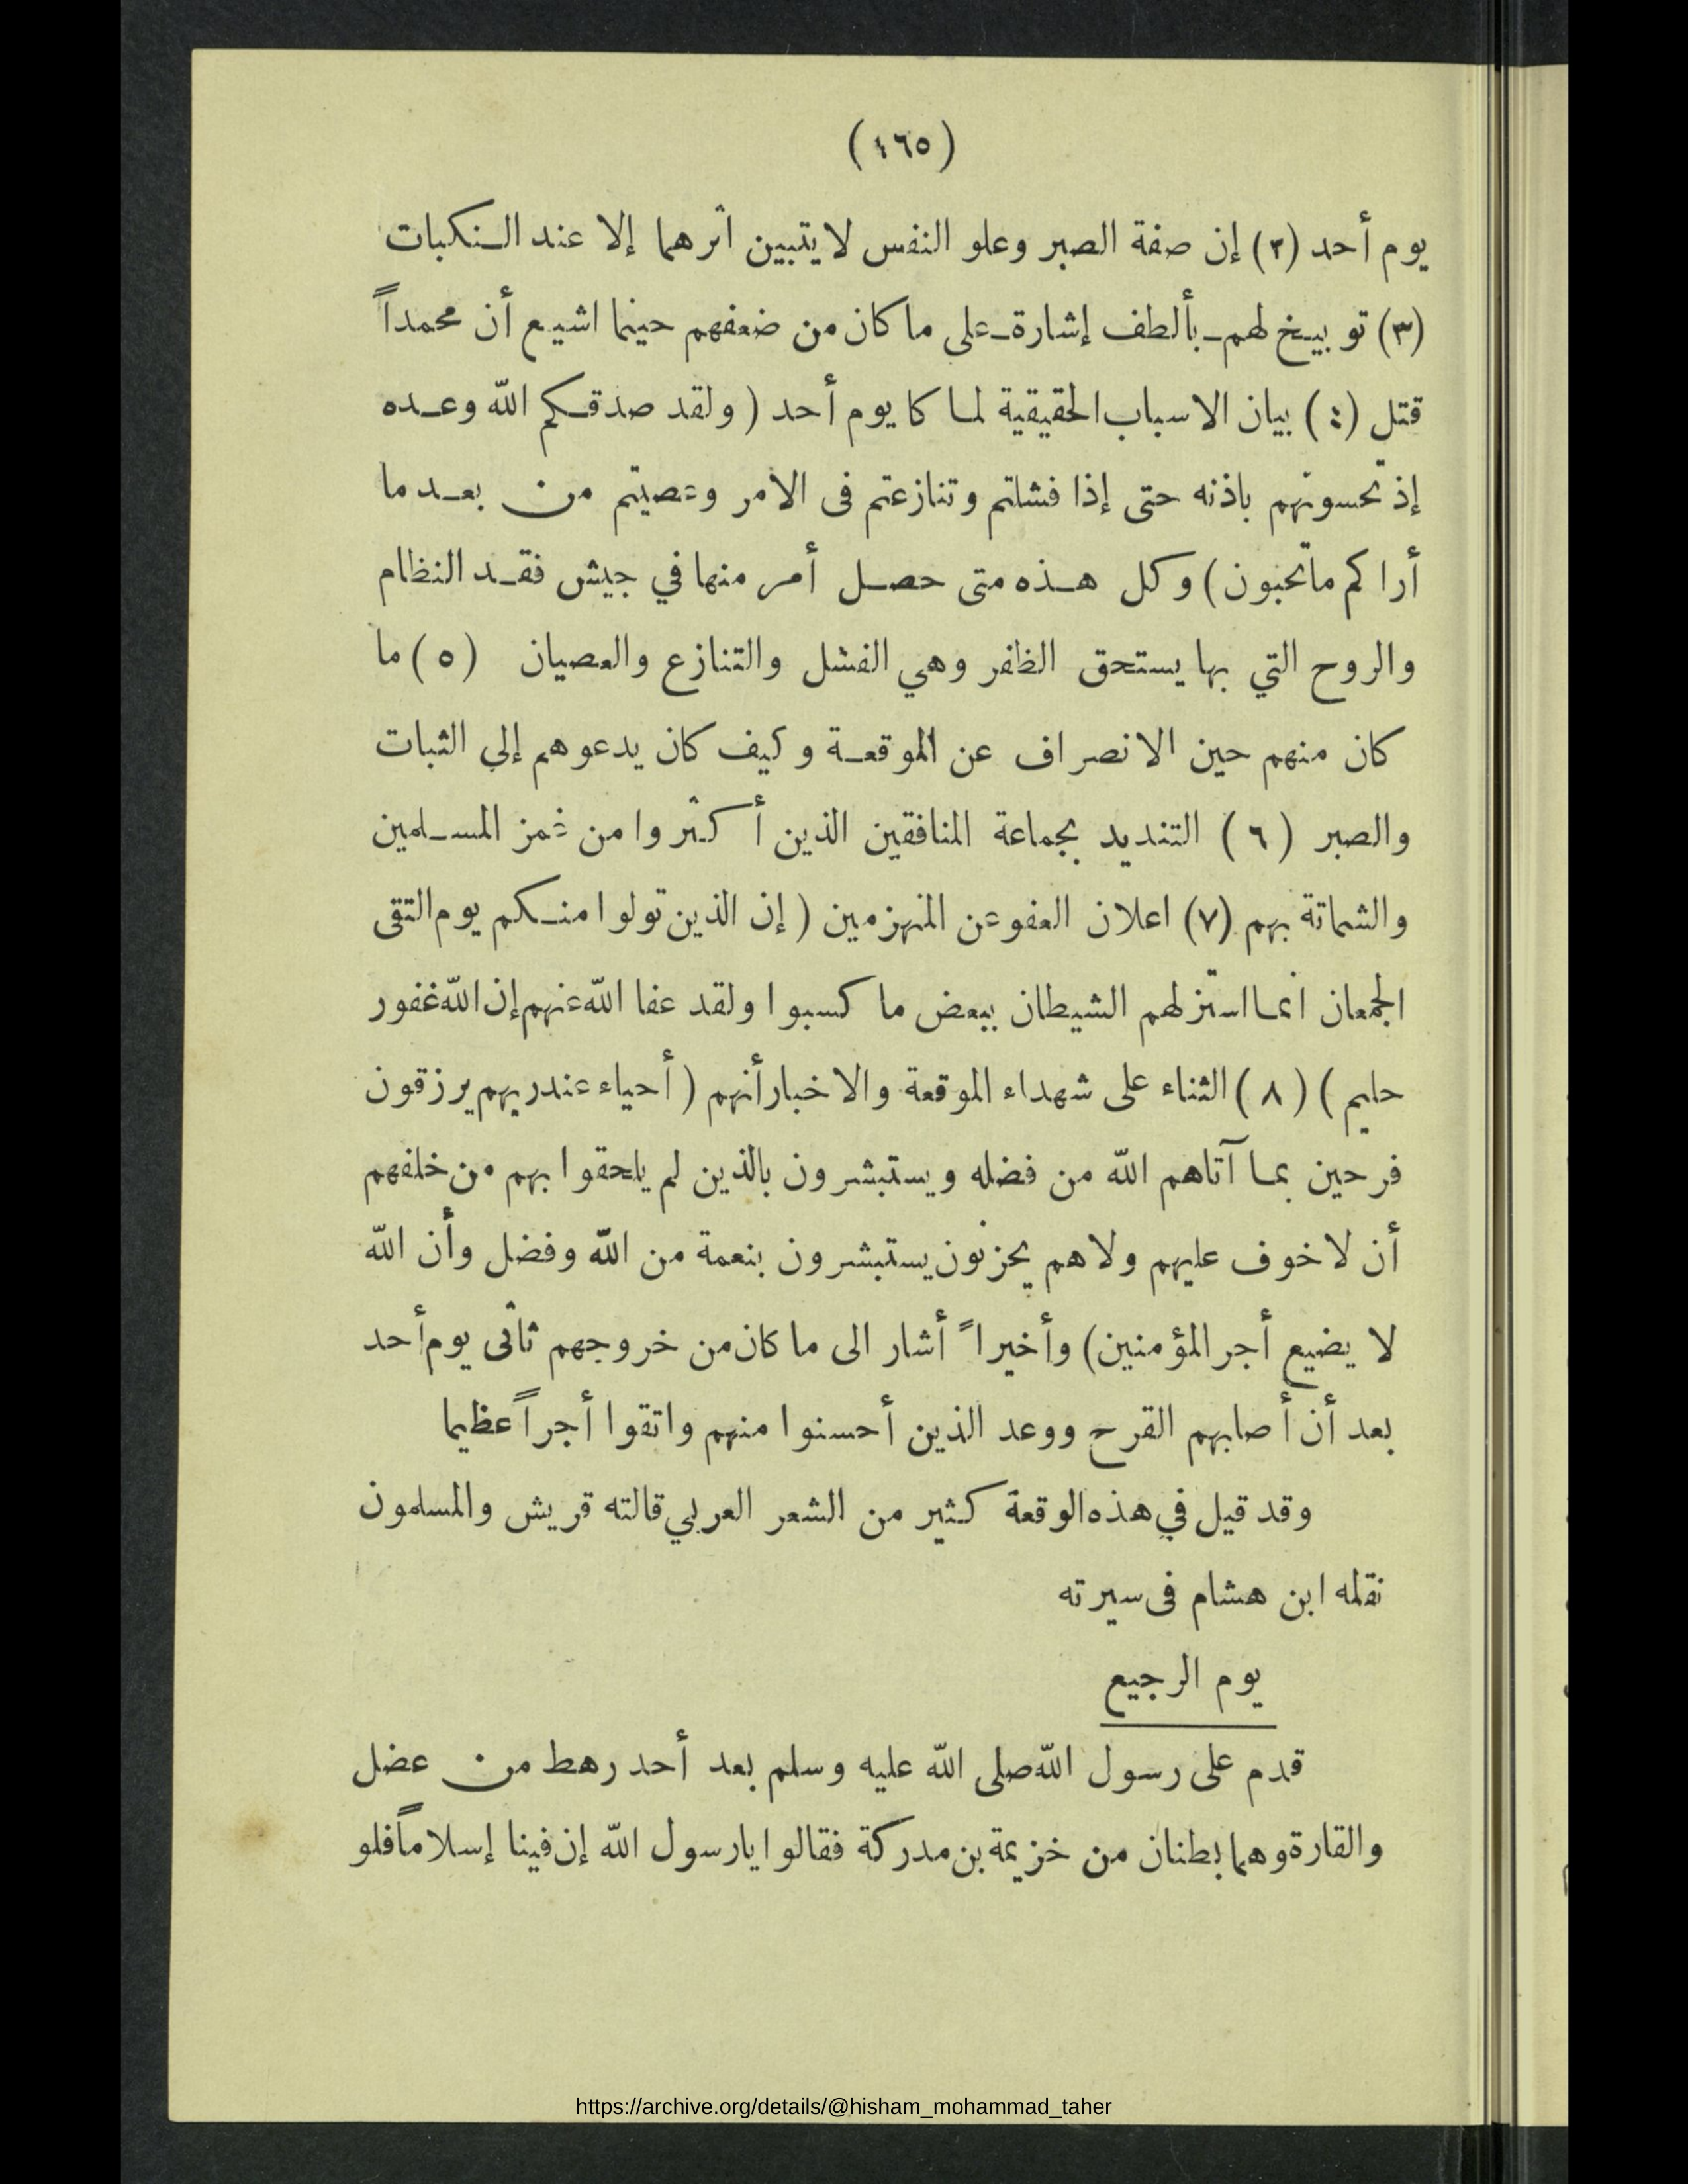 (١٦٥)
يوم أحد (٢) إن صفة الصبر وعلو النفس لا يتبين اثرهما إلا عند النكبات
(٣) توبيخ لهم ـ بألطف إشارة ـ على ما كان من ضعفهم حينما اشيع أن محمداً
قتل (٤) بيان الاسباب الحقيقية لما كا يوم أحد (ولقد صدقكم الله وعده
إذ تحسونهم باذنه حتى إذا فشلتم وتنازعتم فى الامر وعصيتم من بعد ما
أراكم ما تحبون) وكل هذه متى حصل أمر منها في جيش فقد النظام
والروح التي بها يستحق الظفر وهي الفشل والتنازع والعصيان (٥) ما
كان منهم حين الانصراف عن الموقعة وكيف كان يدعوهم إلي الثبات
والصبر (٦) التنديد بجماعة المنافقين الذين أكثروا من غمز المسلمين
والشماتة بهم (٧) اعلان العفو عن المنهزمين (إن الذين تولوا منكم يوم التقى
الجمعان انما استزلهم الشيطان ببعض ما كسبوا ولقد عفا الله عنهم إن الله غفور
حليم) (٨) الثناء على شهداء الموقعة والاخبار أنهم (أحياء عند ربهم يرزقون
فرحين بما آتاهم الله من فضله ويستبشرون بالذين لم يلحقوا بهم من خلفهم
أن لا خوف عليهم ولا هم يحزنون يستبشرون بنعمة من الله وفضل وأن الله
لا يضيع أجر المؤمنين) وأخيراً أشار الى ما كان من خروجهم ثانى يوم أحد
بعد أن أصابهم القرح ووعد الذين أحسنوا منهم واتقوا أجراً عظيما
وقد قيل في هذه الوقعة كثير من الشعر العربي قالته قريش والمسلمون
نقله ابن هشام فى سيرته
يوم الرجيع
قدم على رسول الله صلى الله عليه وسلم بعد أحد رهط من عضل
والقارة وهما بطنان من خزيمة بن مدركة فقالوا يا رسول الله إن فينا إسلاماً فلو
https://archive.org/details/@hisham_mohammad_taher